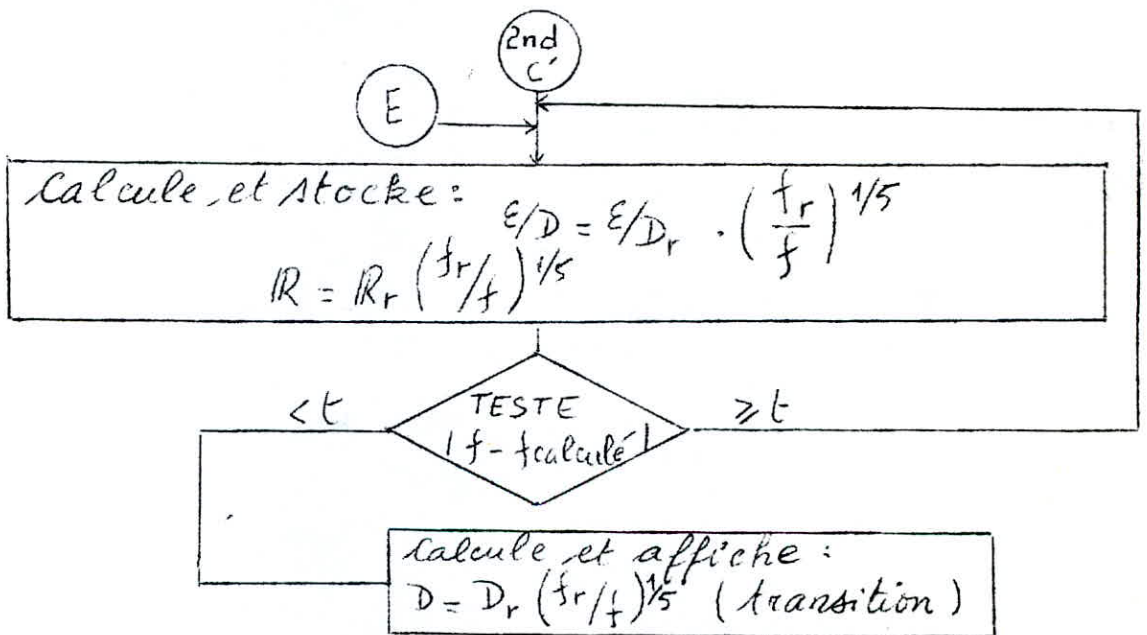 2nd
C'
E
Calcule et stocke :
ε/D = ε/Dr . (fr/f)^1/5
ℝ = ℝr (fr/f)^1/5
< t
TESTE
| f - fcalculé |
⩾ t
Calcule et affiche :
D = Dr (fr/f)^1/5 (transition)